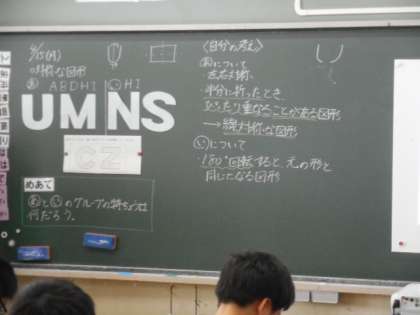 4/15(月)
対称な図形
あ ABDHI
い HI
UM NS
CZI
めあて
あといのグループの特ちょうは
何だろう。
〈自分の考え〉
あについて
左右対称
半分に折ったとき、
ぴったり重なることがある図形
→線対称な図形
いについて
180°回転すると元の形と
同じになる図形